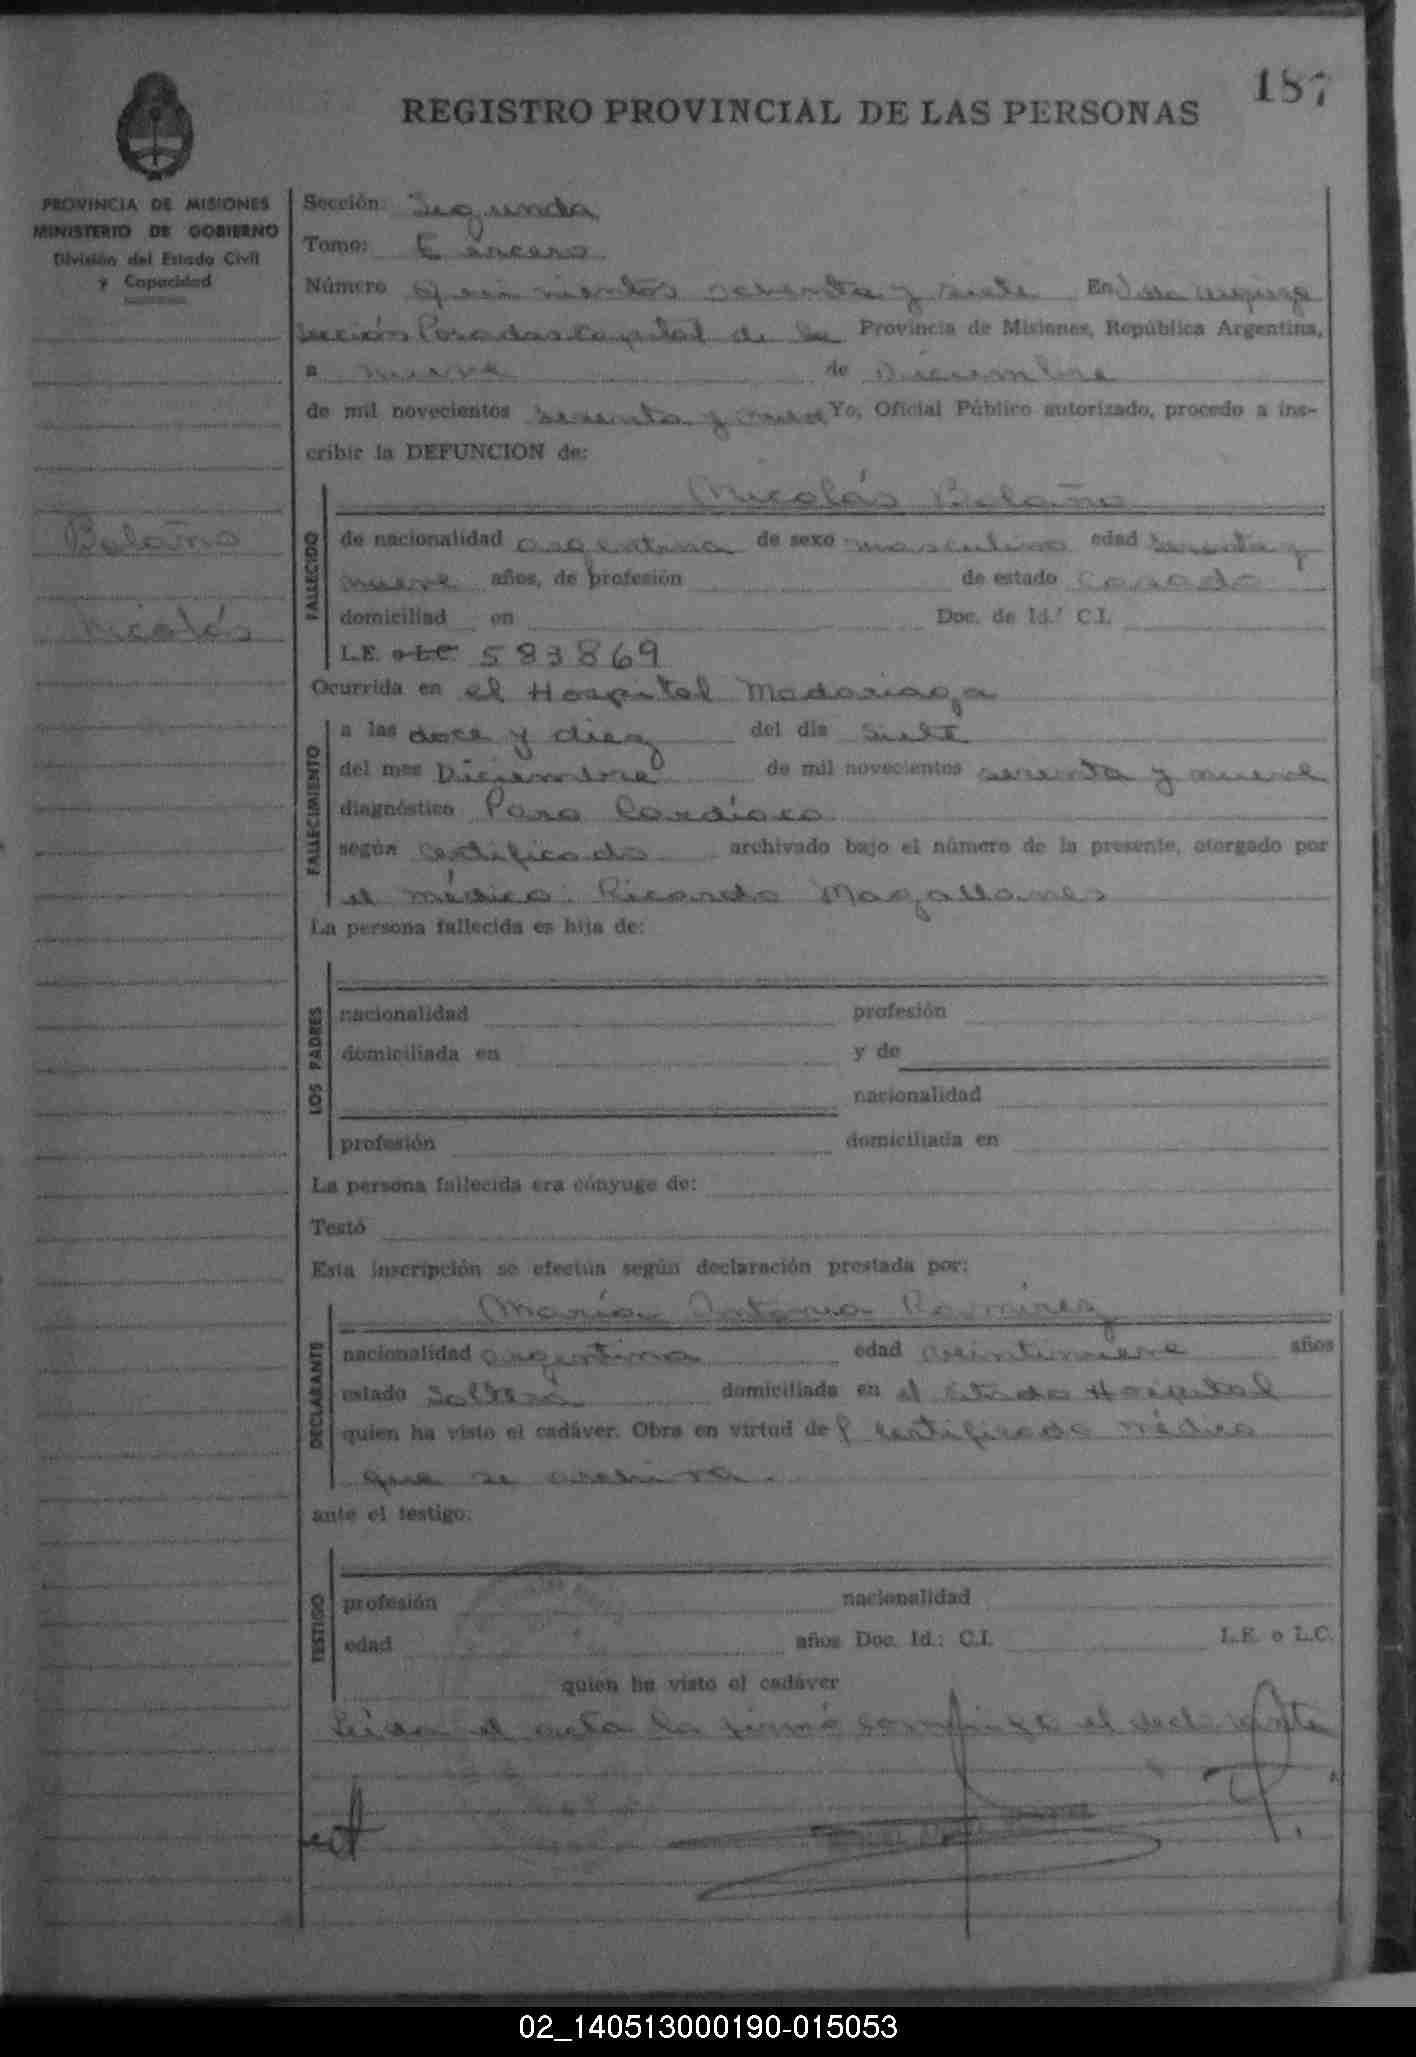 187
REGISTRO PROVINCIAL DE LAS PERSONAS
PROVINCIA DE MISIONES
MINISTERIO DE GOBIERNO
División del Estado Civil
y Capacidad
Bolaño
Nicolás
Sección: Segunda
Tomo: Tercero
Número quinientos setenta y siete En
sección Posadas Capital de la Provincia de Misiones, República Argentina,
a nueve de Diciembre
de mil novecientos setenta y nueve Yo, Oficial Público autorizado, procedo a ins-
cribir la DEFUNCION de:
Nicolás Bolaño
FALLECIDO
de nacionalidad argentina de sexo masculino edad
nueve años, de profesión de estado casado
domiciliad en Doc. de Id.: C.I.
L.E. o L.C. 583869
Ocurrida en el Hospital Madariaga
FALLECIMIENTO
a las doce y diez del día siete
del mes Diciembre de mil novecientos setenta y nueve
diagnóstico Paro Cardíaco
según certificado archivado bajo el número de la presente, otorgado por
el médico: Ricardo Magallanes
La persona fallecida es hija de:
LOS PADRES
nacionalidad profesión
domiciliada en y de
nacionalidad
profesión domiciliada en
La persona fallecida era cónyuge de:
Testó
Esta inscripción se efectúa según declaración prestada por:
María Antonia Ramírez
DECLARANTE
nacionalidad argentina edad veintinueve años
estado soltera domiciliada en el citado Hospital
quien ha visto el cadáver. Obra en virtud del certificado médico
que se archiva.
ante el testigo:
TESTIGO
profesión nacionalidad
edad años Doc. Id.: C.I. L.E. o L.C.
quien ha visto el cadáver
Leída el acta la firmó conmigo el declarante
02_140513000190-015053